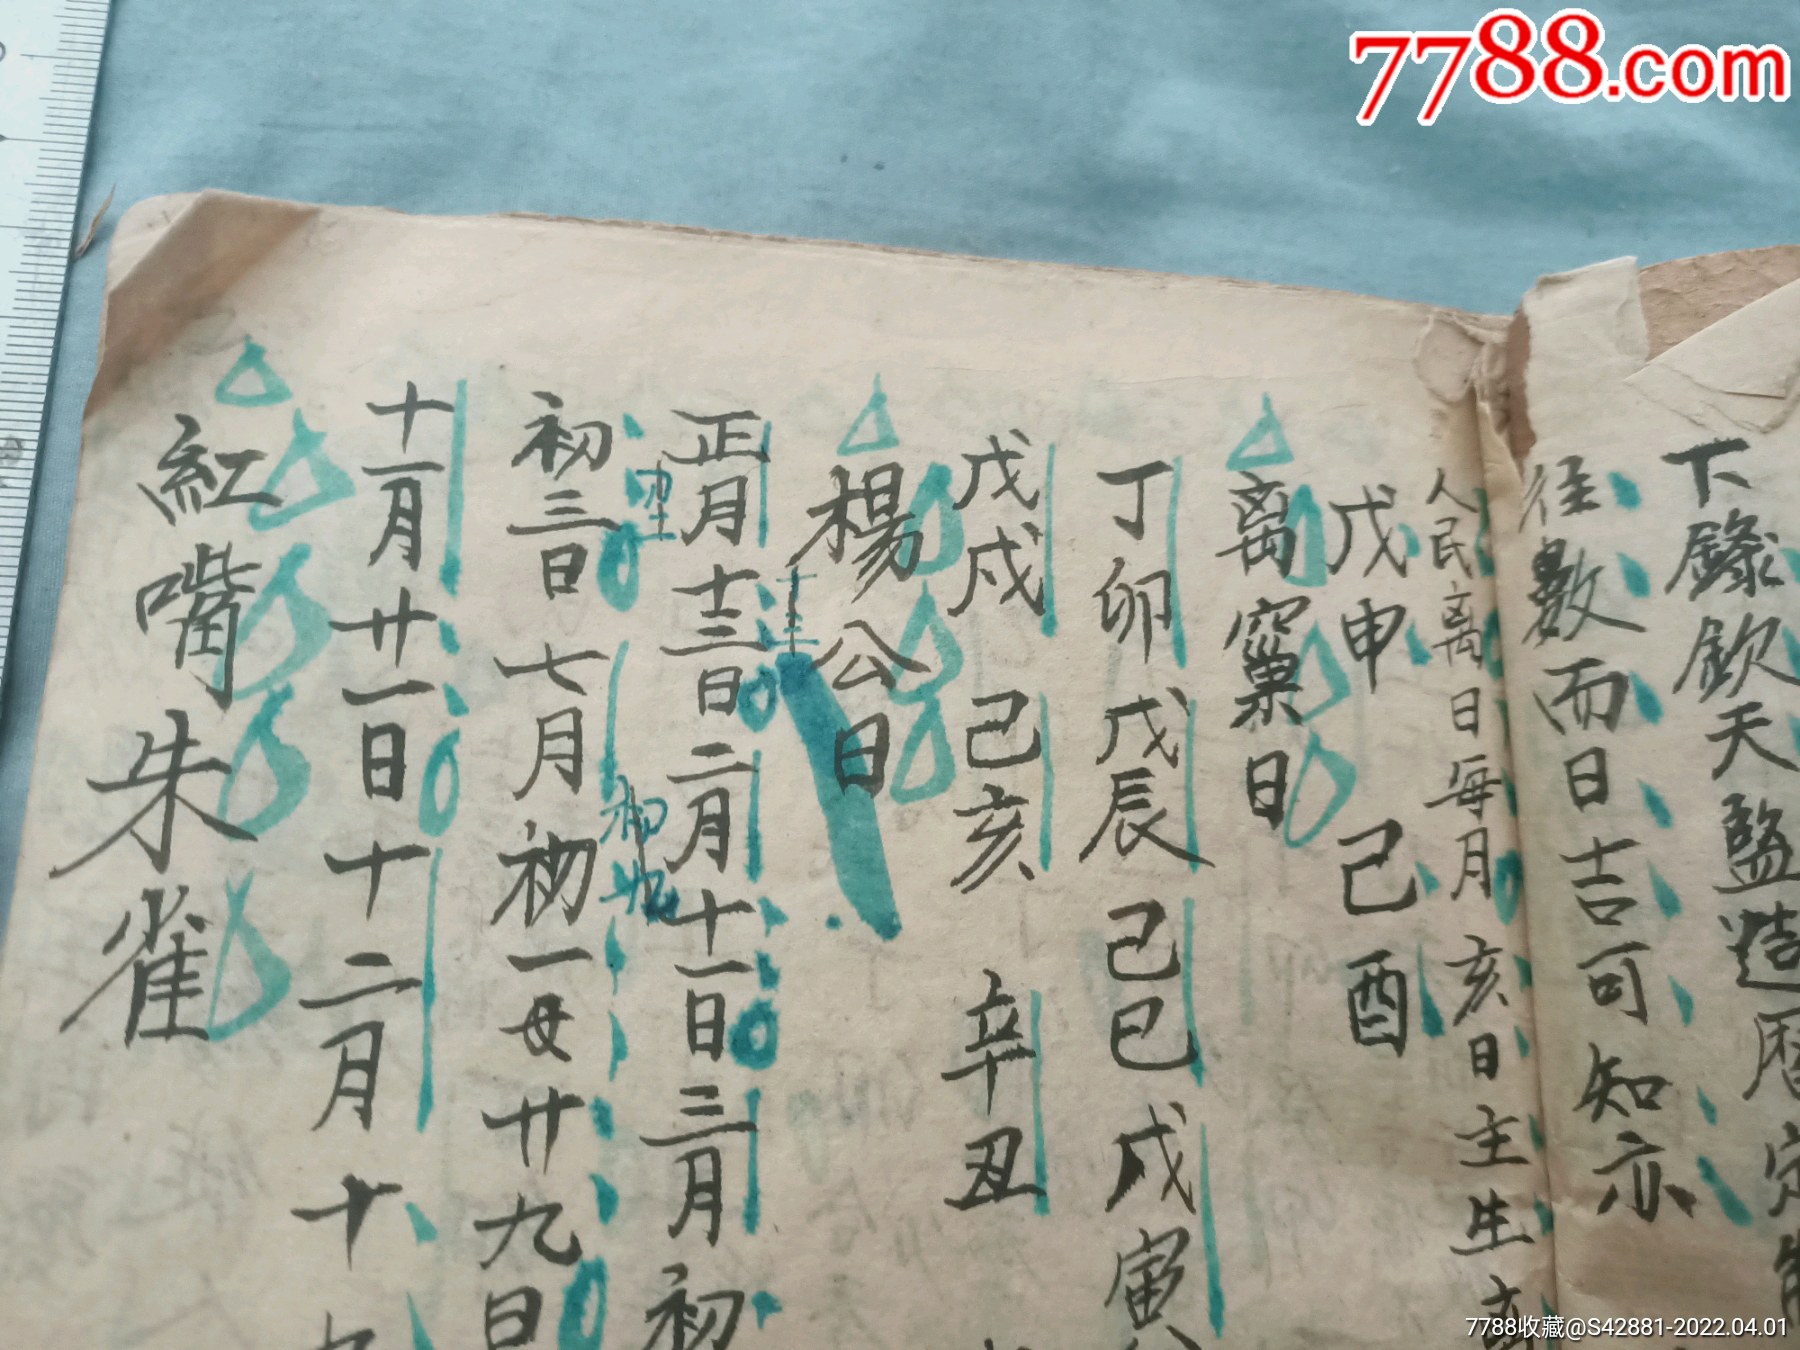 7788.com
下錄欽天監造曆定
往數而日吉可知亦
人民离日每月亥日主生生
戊申 己酉
离窠日
丁卯 戊辰 己巳 戊寅
戊戌 己亥 辛丑
楊公日
正月十三日二月十一日三月初
初三日七月初一廿九日
初九
十一月廿一日十二月十九
紅嘴朱雀
7788收藏@S42881-2022.04.01